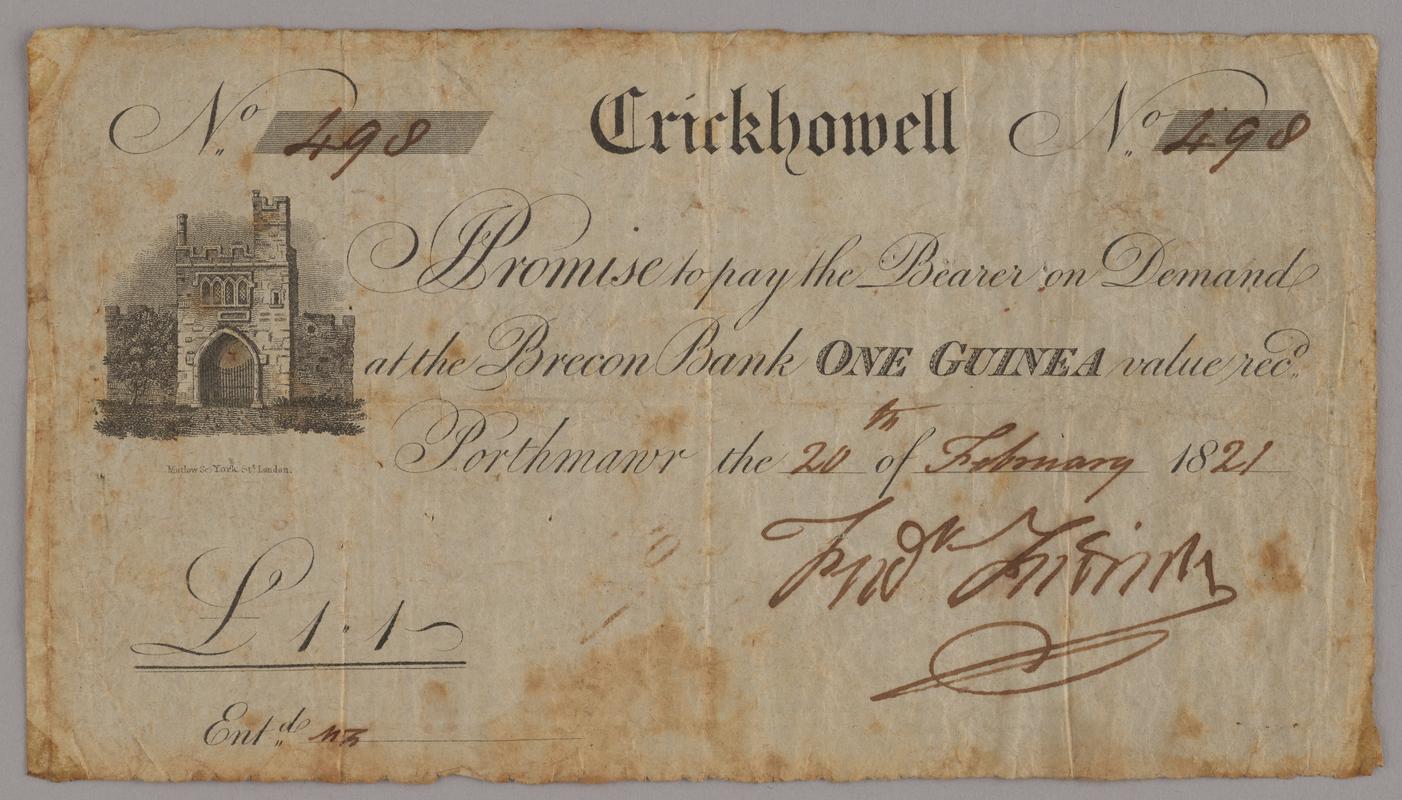 No 498 Crickhowell No 498
I Promise to pay the Bearer on Demand
at the Brecon Bank ONE GUINEA value recd.
Porthmawr the 20th of February 1821
Mutlow Sc. York Stt. London.
Fredk
£1.1
Entd.